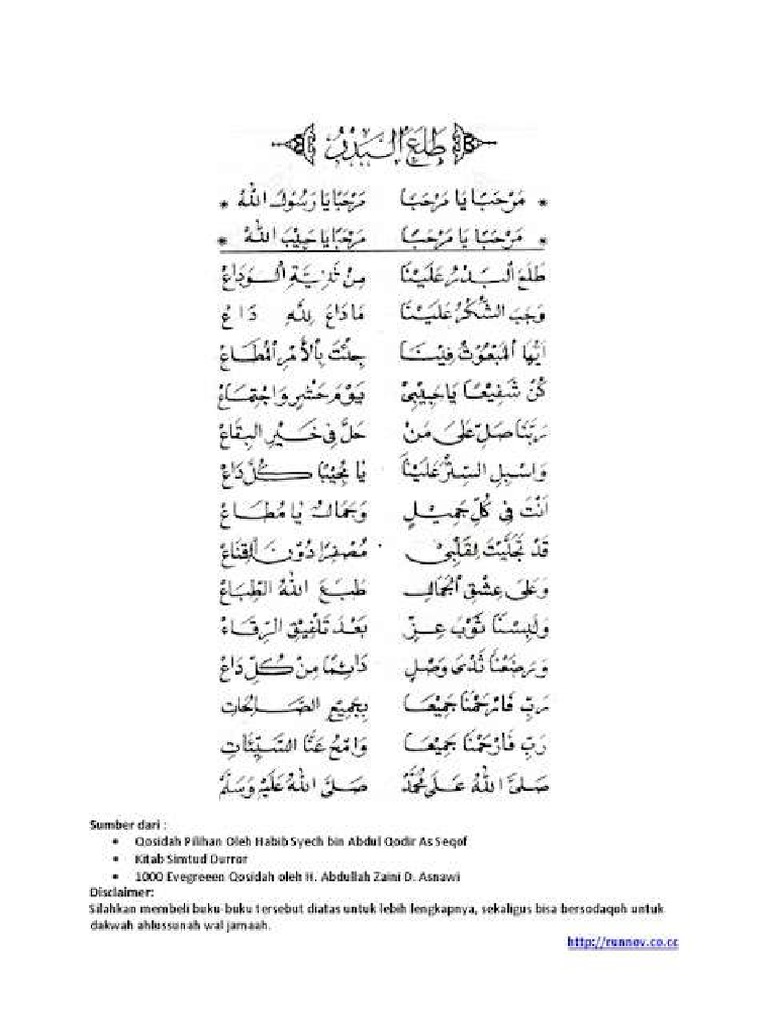 طَلَعَ الْبَدْرُ
* مَرْحَبًا يَا مَرْحَبًا مَرْحَبًا يَا رَسُوْلَ اللهِ *
* مَرْحَبًا يَا مَرْحَبًا مَرْحَبًا يَا حَبِيْبَ اللهِ *
طَلَعَ الْبَدْرُ عَلَيْنَا مِنْ ثَنِيَّةِ الْوَدَاعْ
وَجَبَ الشُّكْرُ عَلَيْنَا مَا دَاعَ لِلّٰهِ دَاعْ
اَيُّهَا الْمَبْعُوْثُ فِيْنَا جِئْتَ بِالْأَمْرِ الْمُطَاعْ
كُنْ شَفِيْعًا يَا حَبِيْبِيْ يَوْمَ حَشْرٍ وَاجْتِمَاعْ
رَبَّنَا صَلِّ عَلٰى مَنْ حَلَّ فِيْ خَيْرِ الْبِقَاعْ
وَاسْبِلِ السِّتْرَ عَلَيْنَا يَا مُجِيْبًا كُلَّ دَاعْ
اَنْتَ فِيْ كُلِّ جَمِيْلٍ وَجَمَالٍ يَا مُطَاعْ
قَدْ تَجَلَّيْتَ لِقَلْبِيْ مُصْفِرًا دُوْنَ الْقِنَاعْ
وَعَلٰى عِشْقِ الْجَمَالِ طَبَعَ اللهُ الطِّبَاعْ
وَلَبِسْنَا ثَوْبَ عِزٍّ بَعْدَ تَلْفِيْقِ الرِّقَاعْ
وَرَضَعْنَا ثَدْيَ وَصْلٍ دَائِمًا مِنْ كُلِّ دَاعْ
رَبِّ فَارْحَمْنَا جَمِيْعًا بِجَمِيْعِ الصَّالِحَاتِ
رَبِّ فَارْحَمْنَا جَمِيْعًا وَامْحُ عَنَّا السَّيِّئَاتِ
صَلَّى اللهُ عَلٰى مُحَمَّدْ صَلَّى اللهُ عَلَيْهِ وَسَلَّمْ
Sumber dari :
• Qosidah Pilihan Oleh Habib Syech bin Abdul Qodir As Seqof
• Kitab Simtud Durror
• 1000 Evegreeen Qosidah oleh H. Abdullah Zaini D. Asnawi
Disclaimer:
Silahkan membeli buku-buku tersebut diatas untuk lebih lengkapnya, sekaligus bisa bersodaqoh untuk
dakwah ahlussunah wal jamaah.
http://runnov.co.cc